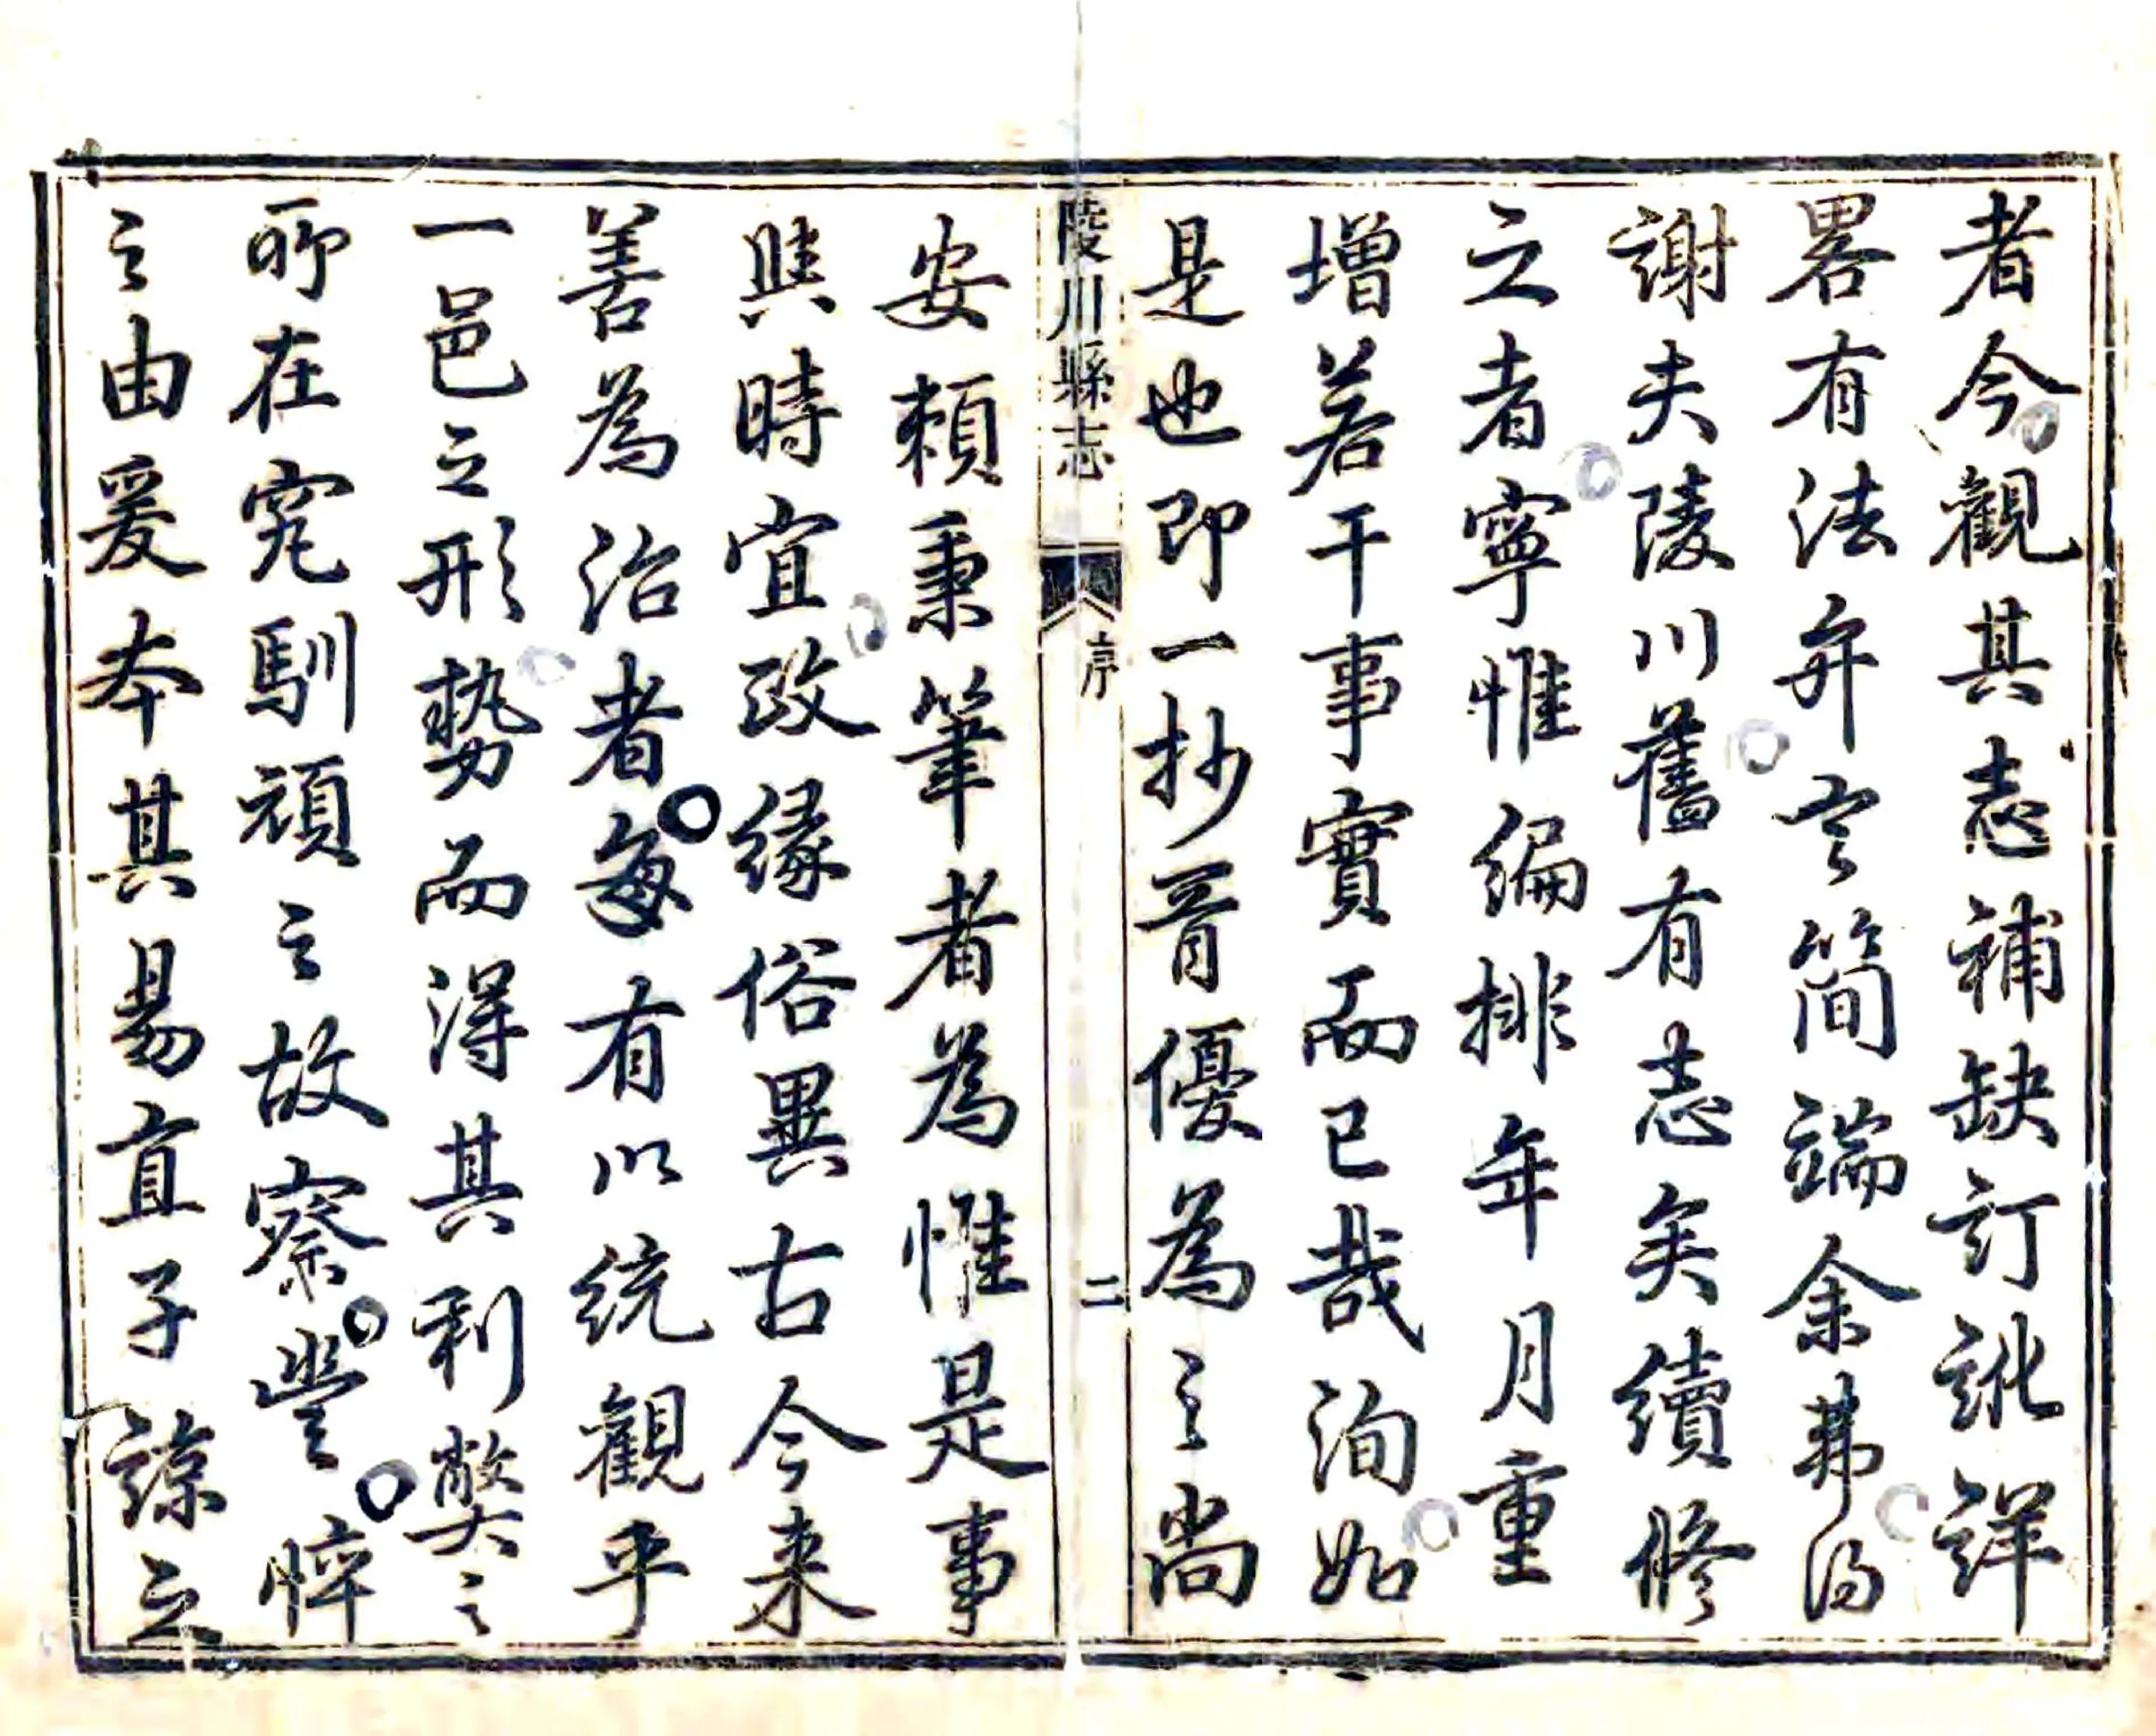 者今觀其志補缺訂訛詳
畧有法弁言簡端余弗得
謝夫陵川舊有志矣續修
之者寧惟編排年月重
增若干事實而已哉洵如
是也即一抄胥優為之尚
陵川縣志 序 二
安賴秉筆者為惟是事
與時宜政緣俗異古今來
善為治者每有以統觀乎
一邑之形勢而得其利弊之
所在究馴頑之故察豐悴
之由爰本其易直子諒之